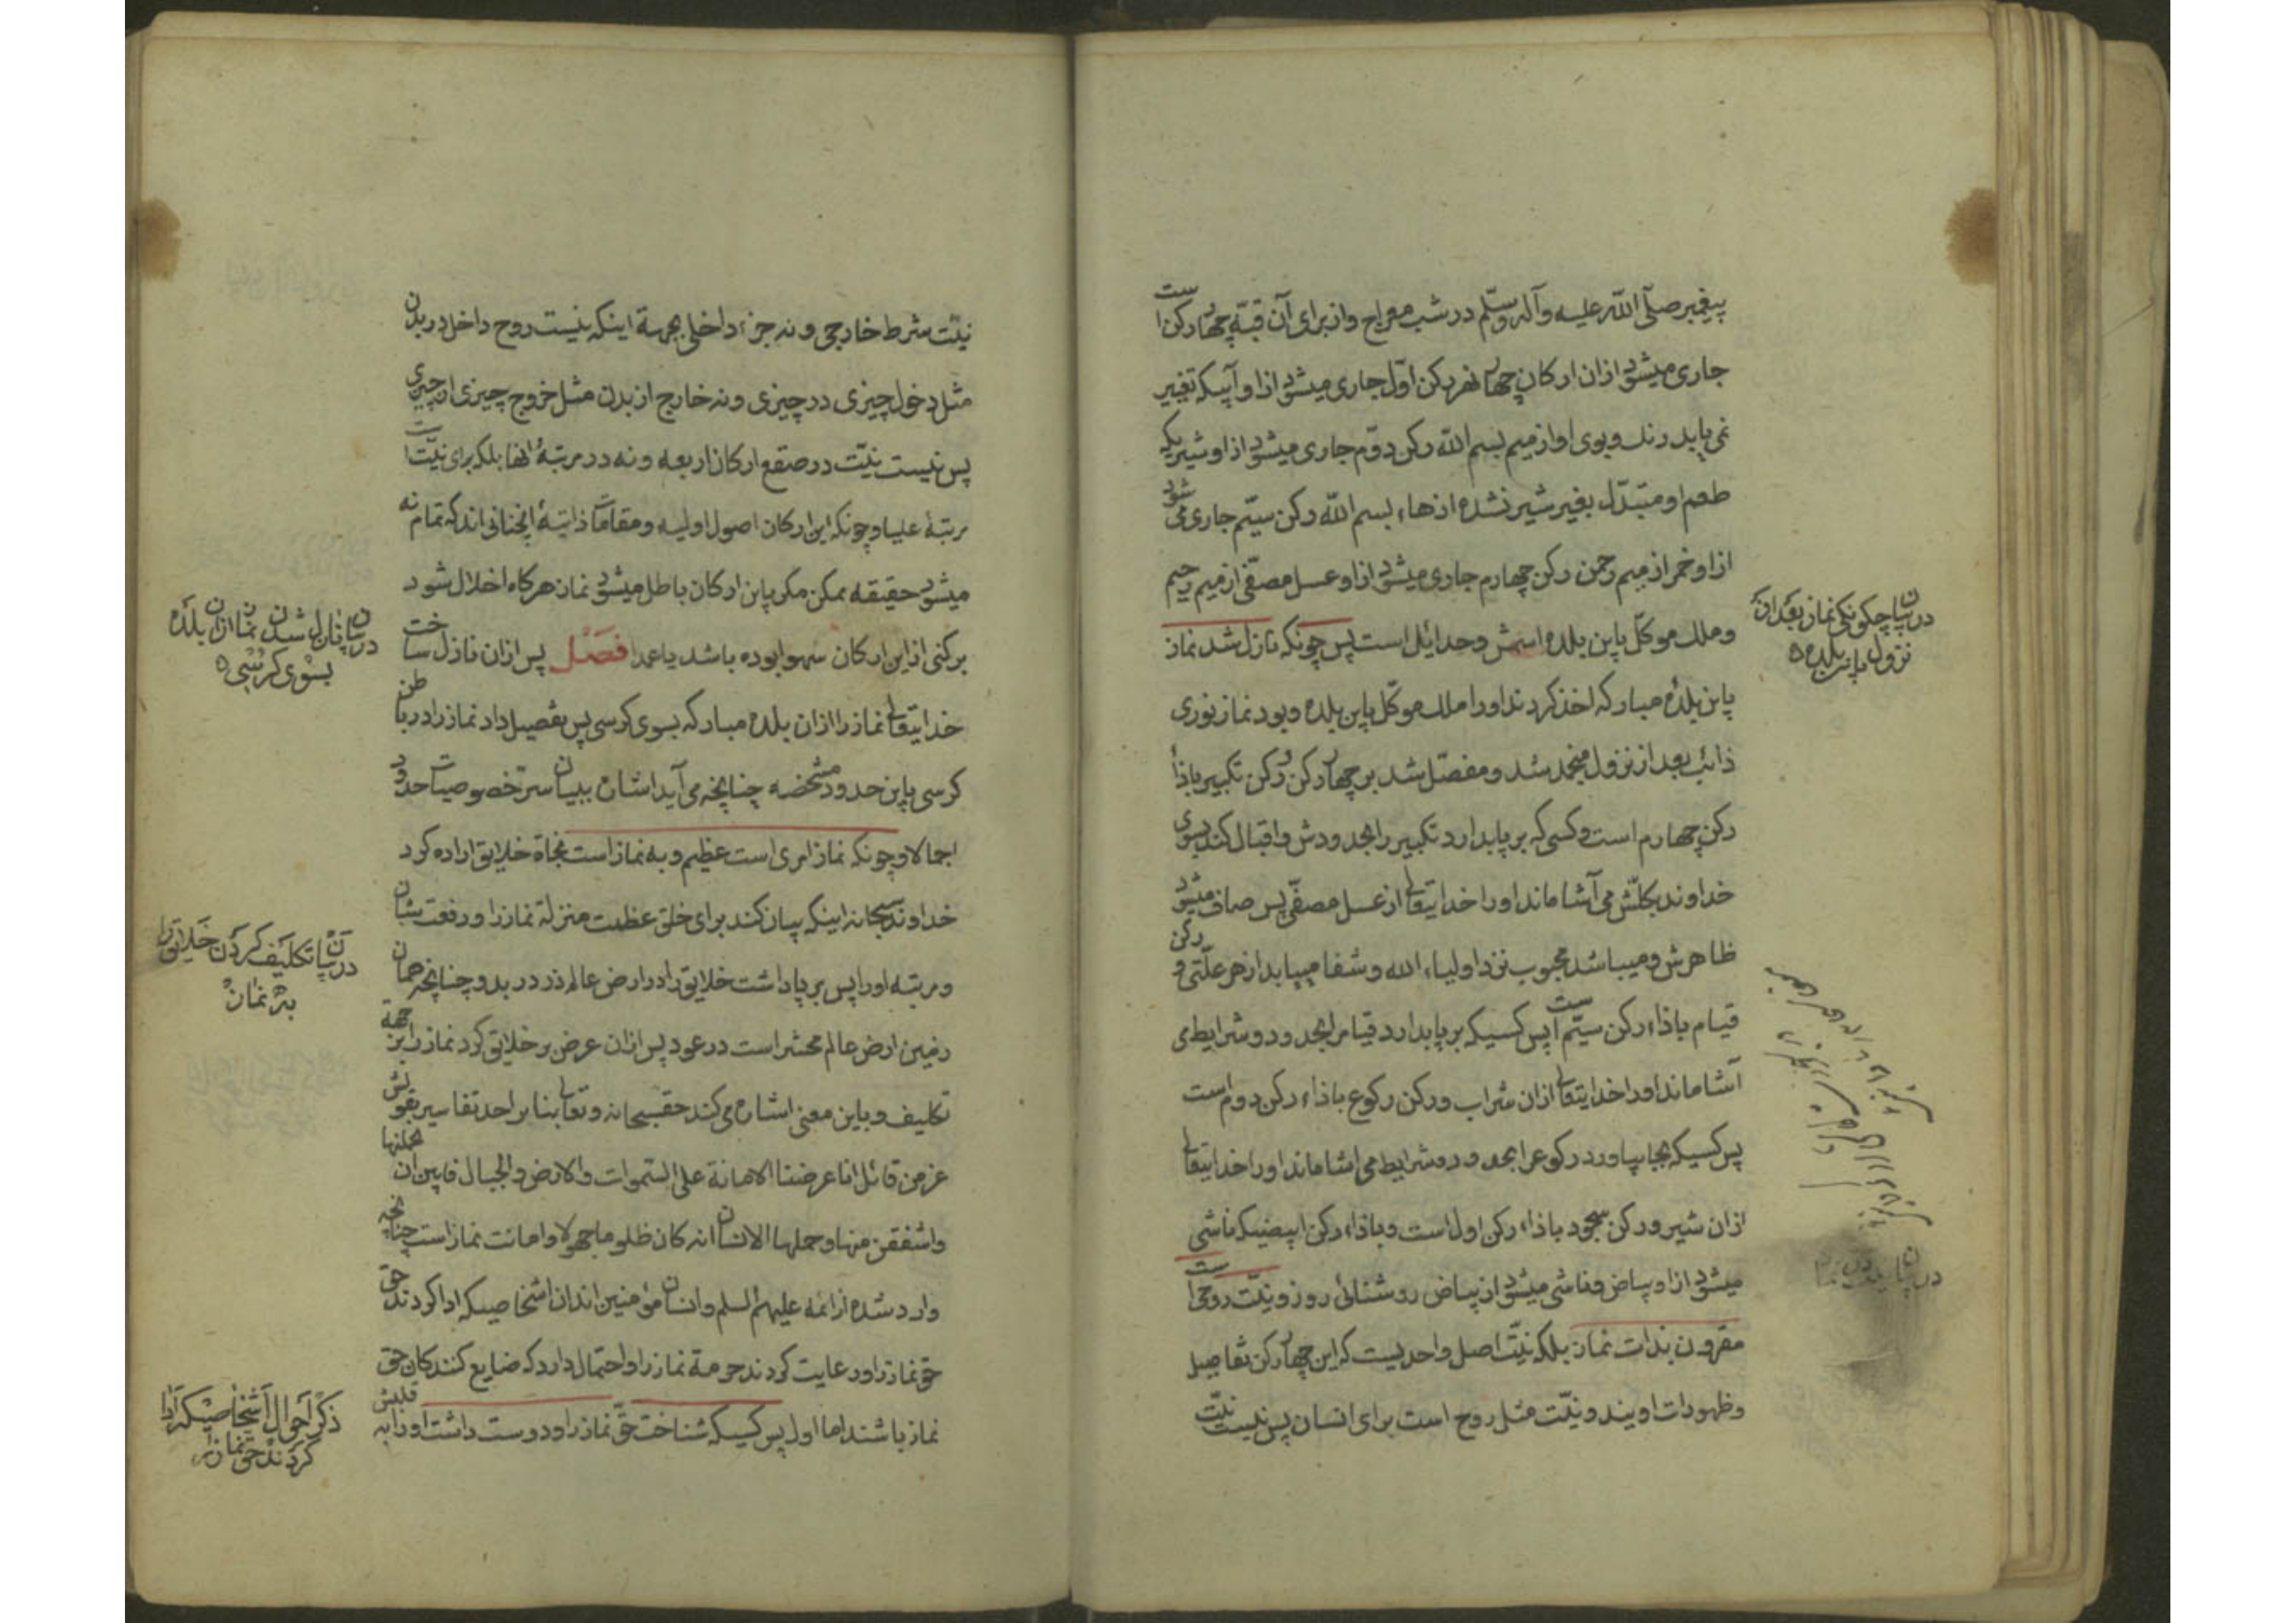 پیغمبر صلّی اللّه علیه وآله وسلّم در شب معراج واز برای آن قبّه چهار رکن است
جاری میشود ازان ارکان چهار نهر رکن اوّل جاری میشود ازاو آبیکه تغییر
نمی یابد رنك وبوی اواز میم بسم اللّه رکن دوّم جاری میشود ازاو شیریکه
طعم او متبدّل بغیر شیر نشده ازهاء بسم اللّه رکن سیّم جاری می شود
ازاو خمر از میم رحمن رکن چهارم جاری میشود ازاو عسل مصفّی از میم رحیم
وملك موکّل باین بلده اسمش وحدائیل است پس چونکه نازل شد نماز
باین بلدهٔ مبارکه اخذ کردند اورا ملك موکّل باین بلده وبود نماز نوری
ذائب بعد از نزول منجمد شد ومفصّل شد بر چهار رکن ورکن تکبیر باذاءٔ
رکن چهارم است وکسی که برپا بدارد تکبیر را بحدودش واقبال کند بسوی
خداوند بکلّش می آشاماند اورا خدایتعالی از عسل مصفّی پس صاف میشود
ظاهرش ومیباشد محبوب نزد اولیاء الله وشفا مییابد از هر علّتی و رکن
قیام باذاء رکن سیّم است پس کسیکه برپا بدارد قیام را بحدود وشرایط می
آشاماند اورا خدایتعالی ازان شراب ورکن رکوع باذاء رکن دوم است
پس کسیکه بجا بیاورد رکوع را بحدود وشرایط می اشاماند اورا خدایتعالی
ازان شیر ورکن سجود باذاء رکن اول است وباذاء رکن ابیضیکه ناشی
میشود ازاو بیاض وناشی میشود از بیاض روشنائی روز ونیّت روحی است
مقرون بذات نماز بلکه نیّت اصل واحدیست که این چهار رکن تفاصیل
وظهورات اویند ونیّت مثل روح است برای انسان پس نیست نیّت
در بیان چکونکی نماز بعد از
نزول باین بلده
نیّت شرط خارجی ونه جزء داخلی بجهة اینکه نیست روح داخل در بدن
مثل دخول چیزی در چیزی ونه خارج از بدن مثل خروج چیزی از چیزی
پس نیست نیّت در صقع ارکان اربعه ونه در مرتبهٔ انها بلکه برای نیّت است
مرتبهٔ علیا وچونکه این ارکان اصول اولیه ومقامات ذاتیهٔ انچنانی اند که تمام نه
میشود حقیقه ممکن مکر باین ارکان باطل میشود نماز هرکاه اخلال شود
برکنی از این ارکان سهوا بوده باشد یا عمدا فصل پس ازان نازل ساخت
خدایتعالی نماز را ازان بلده مبارکه بسوی کرسی پس تفصیل داد نماز را در باطن
کرسی باین حدود مشخصه چنانچه می آید اشاره ببیان سرّ خصوصیات حدود
اجمالا وچونکه نماز امری است عظیم وبه نماز است نجاة خلایق اراده کرد
خداوند سبحانه اینکه بیان کند برای خلق عظمت منزلة نماز را ورفعت شان
ومرتبه اورا پس برپا داشت خلایق را در ارض عالم ذر در بدو چنانچه همان
زمین ارض عالم محشر است در عود پس ازان عرض بر خلایق کرد نماز را بر جهة
تکلیف وباین معنی اشاره می کند حق سبحانه وتعالی بنا بر احد تفاسیر بقولش
عز من قائل انا عرضنا الامانة علی السّموات والارض والجبال فابین ان یحملنها
واشفقن منها وحملها الانسان انه کان ظلوما جهولا وامانت نماز است چنانچه
وارد شده از ائمه علیهم السلم وانسان مؤمنین اند ان اشخاصیکه ادا کردند حق
حق نماز را ورعایت کردند حرمة نماز را واحتمال دارد که ضایع کنندکان حق
نماز باشند اما اول پس کسیکه شناخت حقّ نماز را ودوست داشت اورا به قلبش
در بیان نازل شدن نماز ازان بلده
بسوی کرسی
در بیان تکلیف کردن خلایق را
به نماز
ذکر احوال اشخاصیکه ادا
کردند حق نماز را